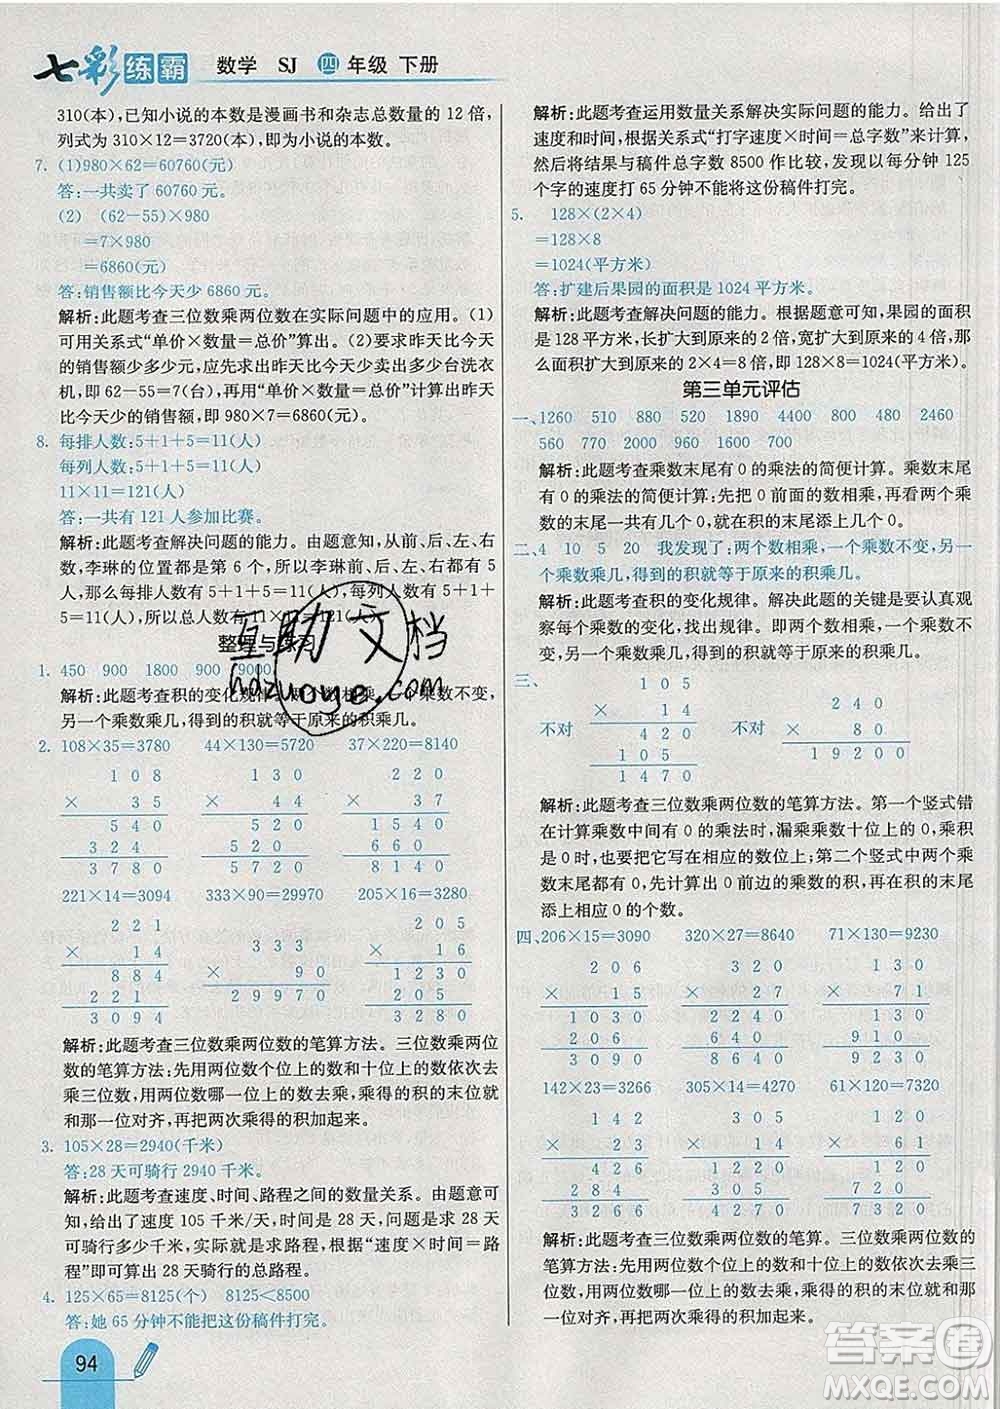 七彩练霸 数学 SJ 四年级 下册
310(本),已知小说的本数是漫画书和杂志总数量的 12 倍,
列式为 310×12=3720(本),即为小说的本数。
7. (1)980×62=60760(元)
答:一共卖了 60760 元。
(2) (62-55)×980
=7×980
=6860(元)
答:销售额比今天少 6860 元。
解析:此题考查三位数乘两位数在实际问题中的应用。(1)
可用关系式“单价×数量=总价”算出。(2)要求昨天比今天
销售额少多少元,应先求出昨天比今天少卖出多少台洗衣
机,即 62-55=7(台),再用“单价×数量=总价”计算出昨天
比今天少的销售额,即 980×7=6860(元)。
8. 每排人数:5+1+5=11(人)
每列人数:5+1+5=11(人)
11×11=121(人)
答:一共有 121 人参加比赛。
解析:此题考查解决问题的能力。由题意知,从前、后、左、右
数,李琳的位置都是第 6 个,所以李琳前、后、左、右都有 5
人,那么每排人数有 5+1+5=11(人),每列人数有 5+1+
5=11(人),所以总人数有 11×11=121(人)。
整理与练习
1. 450 900 1800 900 9000
解析:此题考查积的变化规律。两个数相乘,一个乘数不变,
另一个乘数乘几,得到的积就等于原来的积乘几。
2. 108×35=3780 44×130=5720 37×220=8140
1 0 8 1 3 0 2 2 0
× 3 5 × 4 4 × 3 7
5 4 0 5 2 0 1 5 4 0
3 2 4 5 2 0 6 6 0
3 7 8 0 5 7 2 0 8 1 4 0
221×14=3094 333×90=29970 205×16=3280
2 2 1 3 3 3 2 0 5
× 1 4 × 9 0 × 1 6
8 8 4 2 9 9 7 0 1 2 3 0
2 2 1 2 0 5
3 0 9 4 3 2 8 0
解析:此题考查三位数乘两位数的笔算方法。三位数乘两位
数的笔算方法:先用两位数个位上的数和十位上的数依次去
乘三位数,用两位数哪一位上的数去乘,乘得的积的末位就
和那一位对齐,再把两次乘得的积加起来。
3. 105×28=2940(千米)
答:28 天可骑行 2940 千米。
解析:此题考查速度、时间、路程之间的数量关系。由题意可
知,给出了速度 105 千米/天,时间是 28 天,问题是求 28 天
可骑行多少千米,实际就是求路程,根据“速度×时间=路
程”即可算出 28 天骑行的总路程。
4. 125×65=8125(个) 8125<8500
答:她 65 分钟不能把这份稿件打完。
解析:此题考查运用数量关系解决实际问题的能力。给出了
速度和时间,根据关系式“打字速度×时间=总字数”来计算,
然后将结果与稿件总字数 8500 作比较,发现以每分钟 125
个字的速度打 65 分钟不能将这份稿件打完。
5. 128×(2×4)
=128×8
=1024(平方米)
答:扩建后果园的面积是 1024 平方米。
解析:此题考查解决问题的能力。根据题意可知,果园的面积
是 128 平方米,长扩大到原来的 2 倍,宽扩大到原来的 4 倍,
那么面积扩大到原来的 2×4=8 倍,即 128×8=1024(平方米)。
第三单元评估
一、1260 510 880 520 1890 4400 900 480 2460
560 770 20000 1600 700
解析:此题考查乘数末尾有 0 的乘法的简便计算。乘数末尾
有 0 的乘法的简便计算:先把 0 前面的数相乘,再看两个乘
数的末尾一共有几个 0,就在积的末尾添上几个 0。
二、4 10 5 20 我发现了:两个数相乘,一个乘数不变,另一
个乘数乘几,得到的积就等于原来的积乘几。
解析:此题考查积的变化规律。解决此题的关键是要认真观
察每个乘数的变化,找出规律,即两个数相乘,一个乘数不
变,另一个乘数乘几,得到的积就等于原来的积乘几。
三、
1 0 5 2 4 0
不对 × 1 4 不对 × 8 0
4 2 0 1 9 2 0 0
1 0 5
1 4 7 0
解析:此题考查三位数乘两位数的笔算方法。第一个竖式错
在计算乘数中间有 0 的乘法时,漏乘乘数十位上的 0,积
是 0 时,也要把它写在相应的数位上;第二个竖式中两个乘
数末尾都有 0,先计算出 0 前边的数的积,然后在积的末尾
添上相应 0 的个数。
四、206×15=3090 320×27=8640 71×130=9230
2 0 6 3 2 0 1 3 0
× 1 5 × 2 7 × 7 1
1 0 3 0 2 2 4 0 1 3 0
2 0 6 6 4 0 9 1 0
3 0 9 0 8 6 4 0 9 2 3 0
142×23=3266 305×14=4270 61×120=7320
1 4 2 3 0 5 1 2 0
× 2 3 × 1 4 × 6 1
4 2 6 1 2 2 0 1 2 0
2 8 4 3 0 5 7 2 0
3 2 6 6 4 2 7 0 7 3 2 0
解析:此题考查三位数乘两位数的笔算。三位数乘两位数的
笔算方法:先用两位数个位上的数和十位上的数依次去乘三
位数,用两位数哪一位上的数去乘,乘得的积的末位就和那
一位对齐,再把两次乘得的积加起来。
94
互助文档
hdzuoye.com
答案圈
MXQE.COM